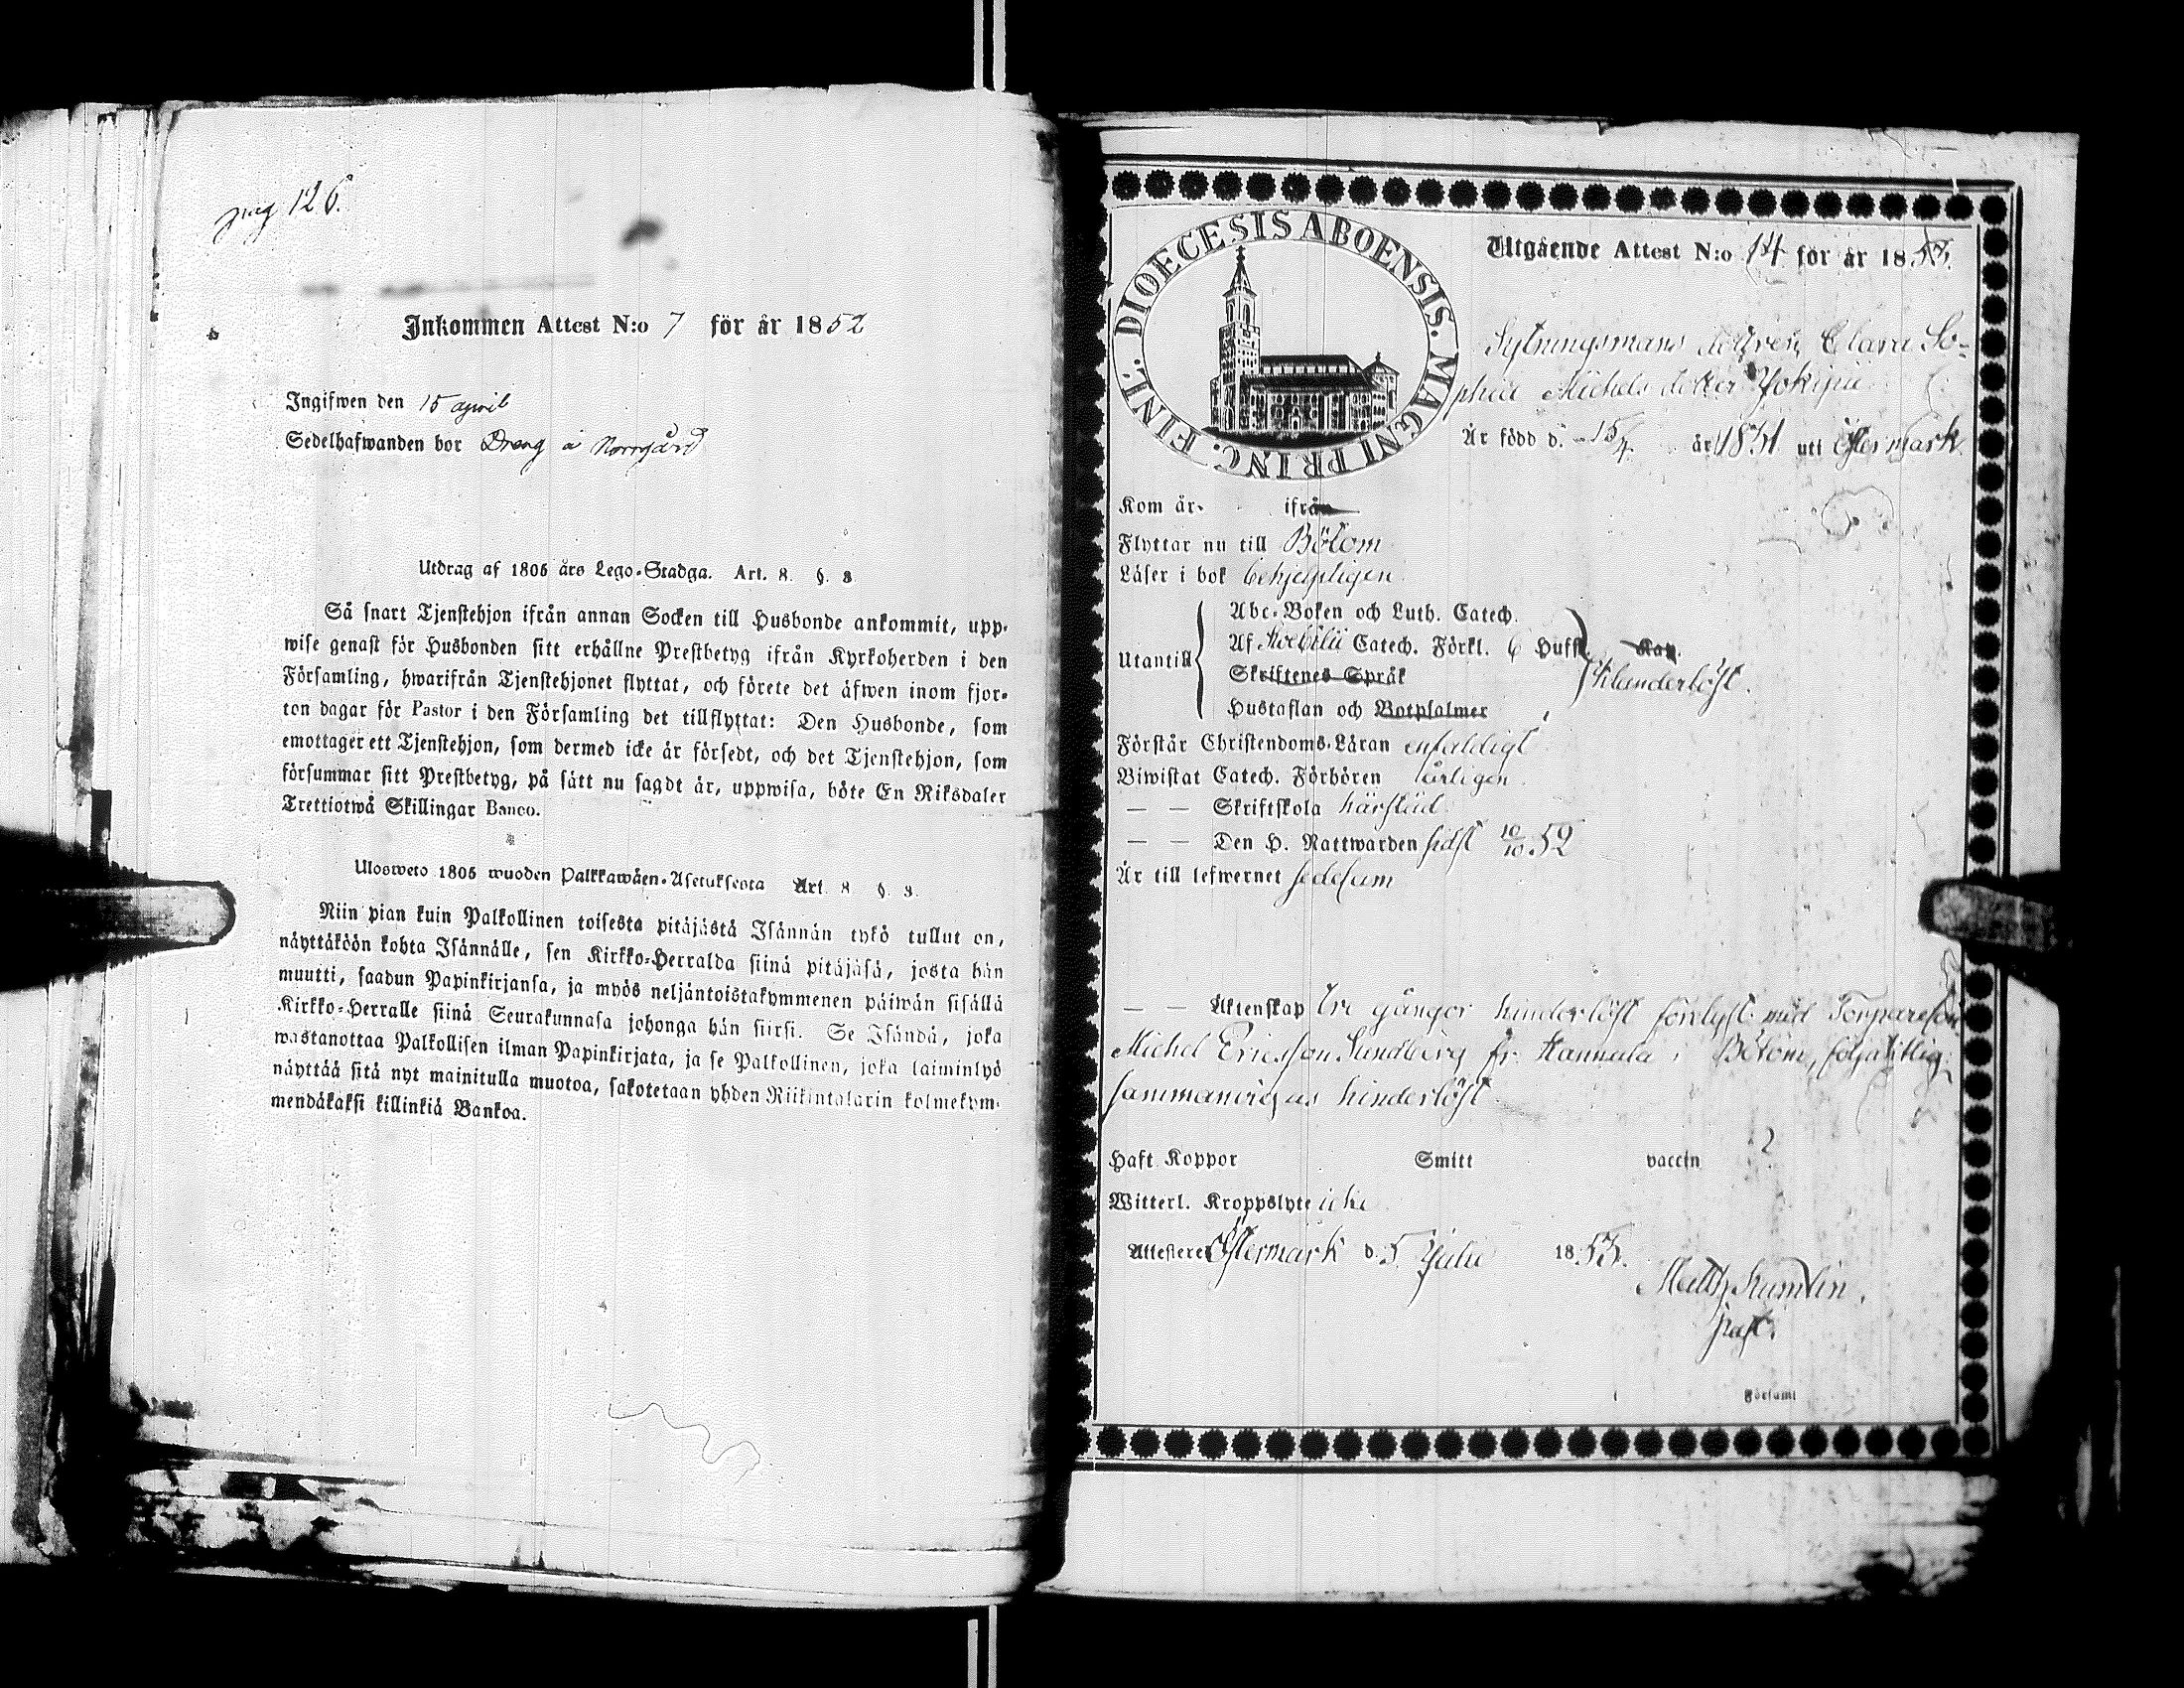 pag 126.
Inkommen Attest N:o 7 för år 1852
Ingifwen den 15 april
Sedelhafwanden bor Dreng å Norrgård
Utdrag af 1805 års Lego-Stadga. Art. 8. §. 3
Så snart Tjenstehjon ifrån annan Socken till Husbonde ankommit, upp-
wise genast för Husbonden sitt erhållne Prestbetyg ifrån Kyrkoherden i den
Församling, hwarifrån Tjenstehjonet flyttat, och förete det äfwen inom fjor-
ton dagar för Pastor i den Församling det tillflyttat: Den Husbonde, som
emottager ett Tjenstehjon, som dermed icke är försedt, och det Tjenstehjon, som
försummar sitt Prestbetyg, på sätt nu sagdt är, uppwisa, böte En Riksdaler
Trettiotwå Skillingar Banco.
Ulosweto 1805 wuoden Palkkawäen-Asetuksesta Art. 8 §. 3.
Niin pian kuin Palkollinen toisesta pitäjästä Isännän tykö tullut on,
näyttäköön kohta Isännälle, sen Kirkko-Herralda siinä pitäjäsä, josta hän
muutti, saadun Papinkirjansa, ja myös neljäntoistakymmenen päiwän sisällä
Kirkko-Herralle siinä Seurakunnasa johonga hän siirsi. Se Isändä, joka
wastanottaa Palkollisen ilman Papinkirjata, ja se Palkollinen, joka laiminlyö
näyttää sitä nyt mainitulla muotoa, sakotetaan yhden Riikintalarin kolmekym-
mendäkaksi killinkiä Bankoa.
DIOECESIS ABOENSIS. MAGNI PRINC. FINL.
Utgående Attest N:o 14 för år 1853.
Sytningsmans dottren Clara So-
phia Michels dotter Jokipii
Är född d. 15/4 år 1831 uti Östermark
Kom år- ifrån
Flyttar nu till Bötom
Läser i bok behjelpligen
Abc-Boken och Luth. Catech.
Af Svebilii Catech. Förkl. 6 Hufst. Kap.
Utantill
Skriftenes Språk klanderlöst.
Hustaflan och Botpsalmer
Förstår Christendoms-Läran enfaldigt
Biwistat Catech. Förhören årligen
— — Skriftskola härstäd
— — Den H. Nattwarden sidst 10/10 52
Är till lefwernet sedesam
— — Äktenskap tre gånger hinderlöst förelyst med Torpareson
Michel Ericsson Sundberg fr. Hannula i Bötom, följaktlig.
sammanvigas hinderlöst
Haft Koppor Smitt vaccin
Witterl. Kroppslyte icke
Attesterer Östermark d. 5 Julii 1853.
Matth Kumlin.
past.
Församl